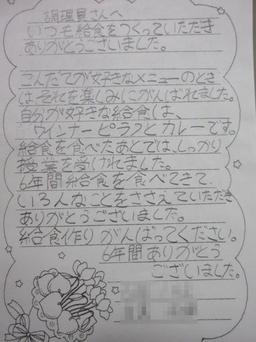 調理員さんへ
いつも給食をつくっていただき
ありがとうございました。
こんだてが好きなメニューのとき
はそれを楽しみにがんばれました。
自分が好きな給食は、
ウインナーピラフとカレーです。
給食を食べたあとでは、しっかり
授業を受けれました。
6年間給食を食べてきて、
いろんなことをささえていただき
ありがとうございました。
給食作りがんばってください。
6年間ありがとう
ございました。